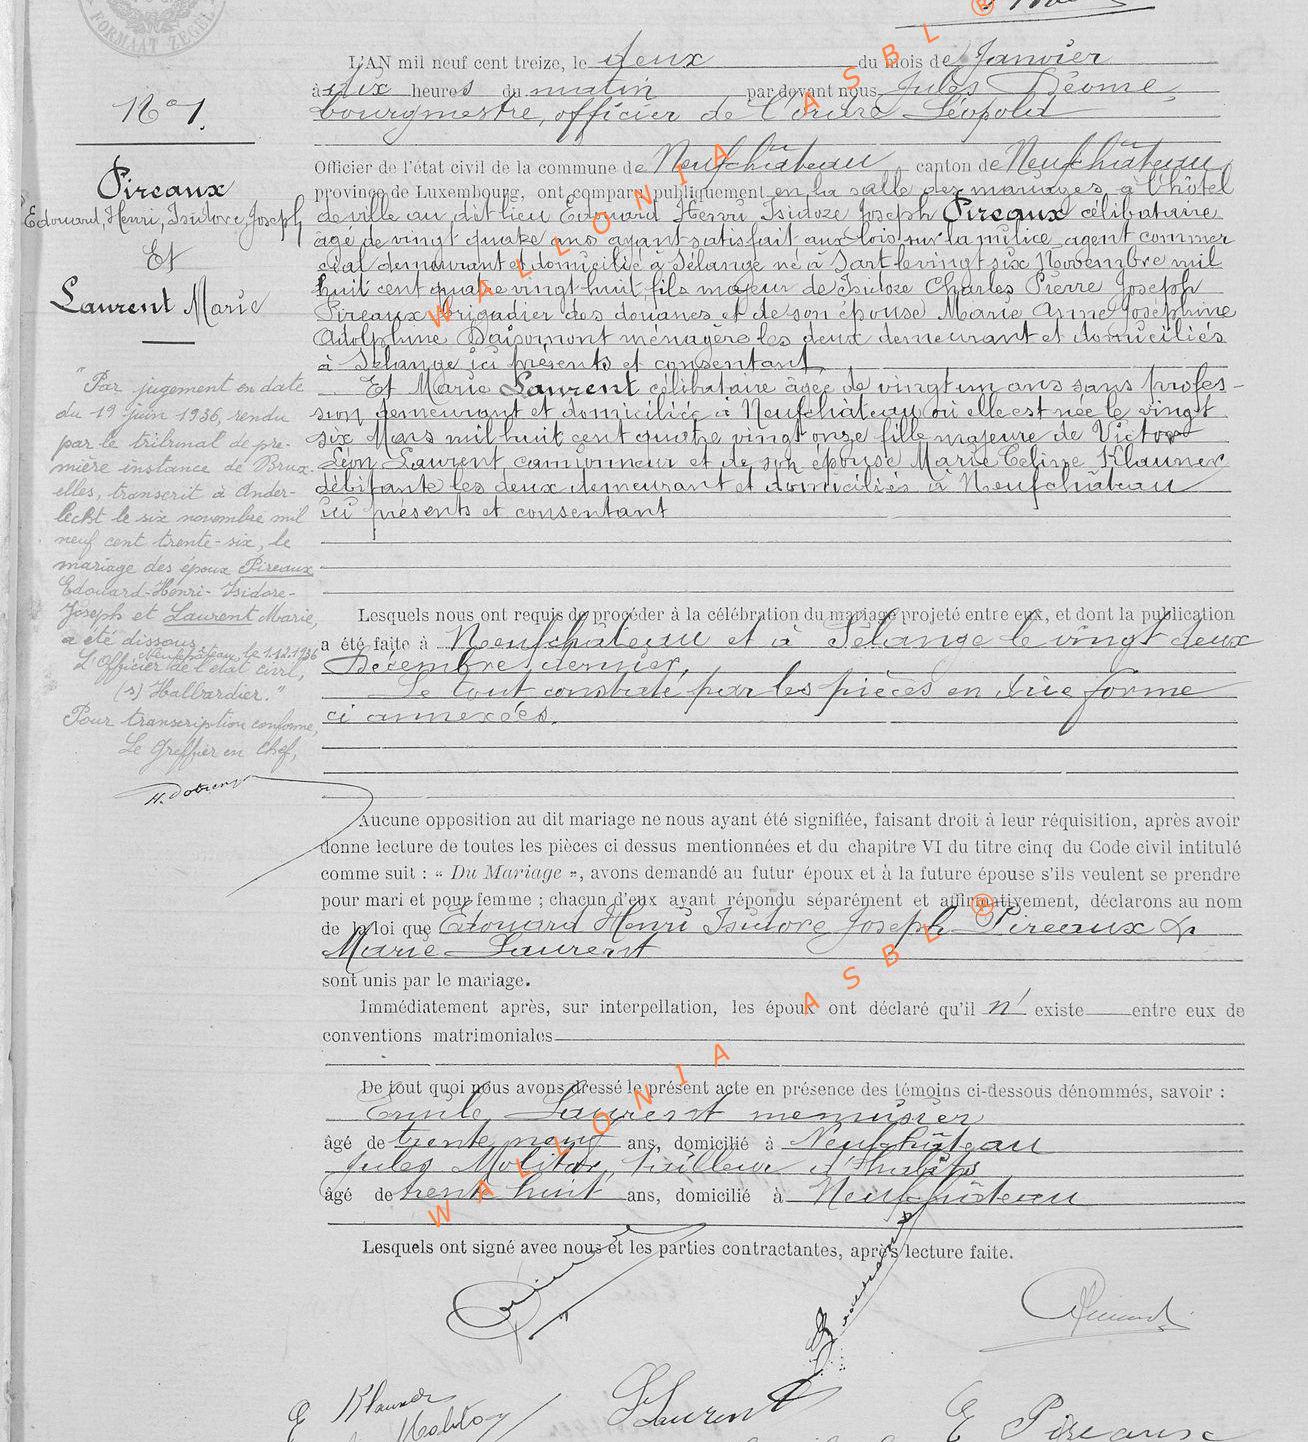 FORMAAT ZEGEL
L'AN mil neuf cent treize, le deux du mois de Janvier
à dix heures du matin par devant nous, Jules
bourgmestre, officier de l'ordre Léopold
Officier de l'état civil de la commune de Neufchâteau canton de Neufchâteau
province de Luxembourg, ont comparu publiquement en la salle des mariages, à l'hôtel
de ville au dit lieu Edouard Henri Isidore Joseph Pireaux célibataire
âgé de vingt quatre ans ayant satisfait aux lois sur la milice agent commer
cial demeurant et domicilié à Sélange né à Sart le vingt six Novembre mil
huit cent quatre vingt huit fils majeur de Isidore Charles Pierre Joseph
Pireaux brigadier des douanes et de son épouse Marie Anne Joséphine
Adolphine ménagère les deux demeurant et domiciliés
à Sélange ici présents et consentant
Et Marie Laurent célibataire âgée de vingt un ans sans profes-
sion demeurant et domiciliée à Neufchâteau où elle est née le vingt
six Mars mil huit cent quatre vingt onze fille majeure de Victor
Léon Laurent, camionneur et de son épouse Marie Celine Klauner
débitante les deux demeurant et domiciliés à Neufchâteau
ici présents et consentant
N° 1.
Pireaux
Edouard, Henri, Isidore, Joseph
Et
Laurent Marie
"Par jugement en date
du 19 juin 1936, rendu
par le tribunal de pre-
mière instance de Brux-
elles, transcrit à Ander-
lecht le six novembre mil
neuf cent trente-six, le
mariage des époux Pireaux
Edouard-Henri-Isidore-
Joseph et Laurent Marie,
a été dissous.
Neufchâteau, le 1.12.1936
L'Officier de l'état civil,
(s) Halbardier."
Pour transcription conforme,
Le Greffier en Chef,
Lesquels nous ont requis de procéder à la célébration du mariage projeté entre eux, et dont la publication
a été faite à Neufchâteau et à Sélange le vingt deux
Décembre dernier.
Le tout constaté par les pièces en due forme
ci annexées.
Aucune opposition au dit mariage ne nous ayant été signifiée, faisant droit à leur réquisition, après avoir
donne lecture de toutes les pièces ci dessus mentionnées et du chapitre VI du titre cinq du Code civil intitulé
comme suit : « Du Mariage », avons demandé au futur époux et à la future épouse s'ils veulent se prendre
pour mari et pour femme ; chacun d'eux ayant répondu séparément et affirmativement, déclarons au nom
de la loi que Edouard Henri Isidore Joseph Pireaux &
Marie Laurent
sont unis par le mariage.
Immédiatement après, sur interpellation, les époux ont déclaré qu'il n' existe entre eux de
conventions matrimoniales
De tout quoi nous avons dressé le présent acte en présence des témoins ci-dessous dénommés, savoir :
Emile Laurent menuisier
âgé de trente neuf ans, domicilié à Neufchâteau
Jules Molitor, tailleur d'habits
âgé de trente huit ans, domicilié à Neufchâteau
Lesquels ont signé avec nous et les parties contractantes, après lecture faite.
E Klauner
Laurent
E Pireaux
WALLONIA ASBL ®
WALLONIA ASBL ®